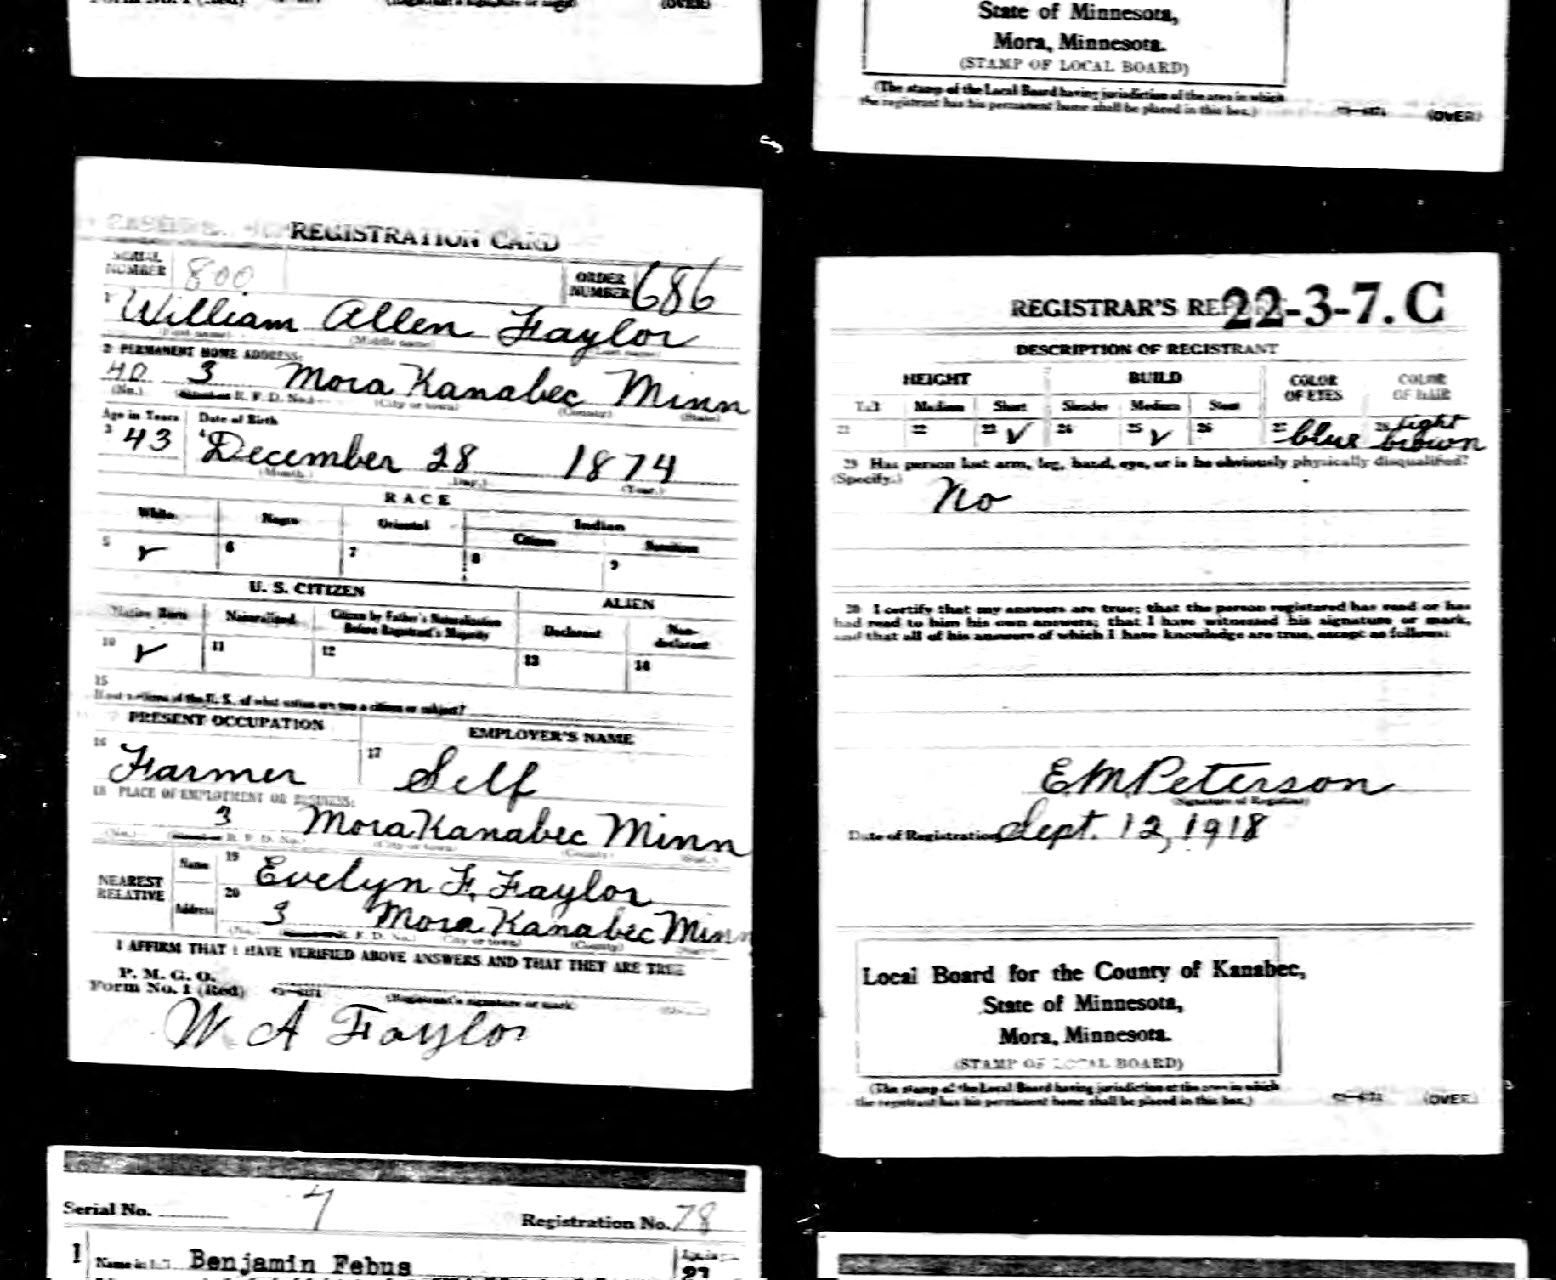 (OVER)
State of Minnesota,
Mora, Minnesota.
(STAMP OF LOCAL BOARD)
(The stamp of the Local Board having jurisdiction of the area in which
the registrant has his permanent home shall be placed in this box.)
(OVER)
REGISTRATION CARD
SERIAL NUMBER 800 ORDER NUMBER 686
1 William Allen Faylor
(First name) (Middle name) (Last name)
2 PERMANENT HOME ADDRESS:
3 Mora Kanabec Minn
(No.) R. F. D. No.) (City or town) (County) (State)
Age in Years Date of Birth
3 43 4 December 28 1874
(Month.) (Day.) (Year.)
RACE
White Negro Oriental Indian
Citizen Noncitizen
5 ✓ 6 7 8 9
U. S. CITIZEN ALIEN
Native Born Naturalized Citizen by Father's Naturalization Before Registrant's Majority Declarant Non-declarant
10 ✓ 11 12 13 14
15
If not a citizen of the U. S. of what nation are you a citizen or subject?
PRESENT OCCUPATION EMPLOYER'S NAME
16 Farmer 17 Self
18 PLACE OF EMPLOYMENT OR BUSINESS:
3 Mora Kanabec Minn
(No.) R. F. D. No.) (City or town) (County) (State)
NEAREST RELATIVE
Name 19 Evelyn F. Faylor
Address 20 3 Mora Kanabec Minn
(No.) R. F. D. No.) (City or town) (County) (State)
I AFFIRM THAT I HAVE VERIFIED ABOVE ANSWERS AND THAT THEY ARE TRUE
P. M. G. O.
Form No. 1 (Red) (Registrant's signature or mark)
W A Faylor
REGISTRAR'S 22-3-7. C
DESCRIPTION OF REGISTRANT
HEIGHT BUILD COLOR OF EYES COLOR OF HAIR
Tall Medium Short Slender Medium Stout
21 22 23 ✓ 24 25 ✓ 26 27 blue 28 light brown
29 Has person lost arm, leg, hand, eye, or is he obviously physically disqualified?
(Specify.)
No
30 I certify that my answers are true; that the person registered has read or has
had read to him his own answers; that I have witnessed his signature or mark,
and that all of his answers of which I have knowledge are true, except as follows:
E M Peterson
(Signature of Registrar)
Date of Registration Sept. 12, 1918
Local Board for the County of Kanabec,
State of Minnesota,
Mora, Minnesota.
(STAMP OF LOCAL BOARD)
(The stamp of the Local Board having jurisdiction of the area in which
the registrant has his permanent home shall be placed in this box.)
(OVER)
Serial No. 7 Registration No. 78
1 Benjamin Febus